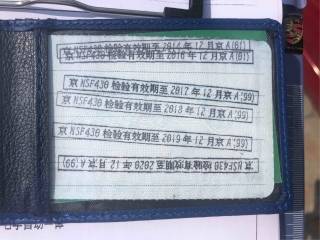 京NSF430检验有效期至2014年12月京A(01)
京NSF430检验有效期至2016年12月京A(01)
京NSF430检验有效期至2017年12月京A(99)
京NSF430检验有效期至2018年12月京A(99)
京NSF430检验有效期至2019年12月京A(99)
京NSF430检验有效期至2020年12月京A(99)